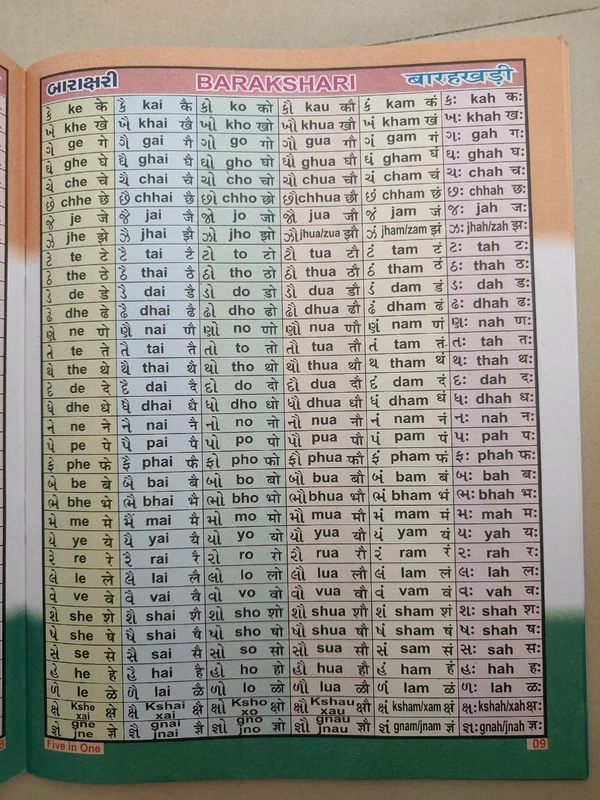 બારાક્ષરી BARAKSHARI बारहखड़ी
કે ke के કૈ kai कै કો ko को કૌ kau कौ કં kam कं કઃ kah कः
ખે khe खे ખૈ khai खै ખો kho खो ખૌ khua खौ ખં kham खं ખઃ khah खः
ગે ge गे ગૈ gai गै ગો go गो ગૌ gua गौ ગં gam गं ગઃ gah गः
ઘે ghe घे ઘૈ ghai घै ઘો gho घो ઘૌ ghua घौ ઘં gham घं ઘઃ ghah घः
ચે che चे ચૈ chai चै ચો cho चो ચૌ chua चौ ચં cham चं ચઃ chah चः
છે chhe छे છૈ chhai छै છો chho छो છૌ chhua छौ છં chham छं છઃ chhah छः
જે je जे જૈ jai जै જો jo जो જૌ jua जौ જં jam जं જઃ jah जः
ઝે jhe झे ઝૈ jhai झै ઝો jho झो ઝૌ jhua/zua झौ ઝં jham/zam झं ઝઃ jhah/zah झः
ટે te टे ટૈ tai टै ટો to टो ટૌ tua टौ ટં tam टं ટઃ tah टः
ઠે the ठे ઠૈ thai ठै ઠો tho ठो ઠૌ thua ठौ ઠં tham ठं ઠઃ thah ठः
ડે de डे ડૈ dai डै ડો do डो ડૌ dua डौ ડં dam डं ડઃ dah डः
ઢે dhe ढे ઢૈ dhai ढै ઢો dho ढो ઢૌ dhua ढौ ઢં dham ढं ઢઃ dhah ढः
ણે ne णे ણૈ nai णै ણો no णो ણૌ nua णौ ણં nam णं ણઃ nah णः
તે te ते તૈ tai तै તો to तो તૌ tua तौ તં tam तं તઃ tah तः
થે the थे થૈ thai थै થો tho थो થૌ thua थौ થં tham थं થઃ thah थः
દે de दे દૈ dai दै દો do दो દૌ dua दौ દં dam दं દઃ dah दः
ધે dhe धे ધૈ dhai धै ધો dho धो ધૌ dhua धौ ધં dham धं ધઃ dhah धः
ને ne ने નૈ nai नै નો no नो નૌ nua नौ નં nam नं નઃ nah नः
પે pe पे પૈ pai पै પો po पो પૌ pua पौ પં pam पं પઃ pah पः
ફે phe फे ફૈ phai फै ફો pho फो ફૌ phua फौ ફં pham फं ફઃ phah फः
બે be बे બૈ bai बै બો bo बो બૌ bua बौ બં bam बं બઃ bah बः
ભે bhe भे ભૈ bhai भै ભો bho भो ભૌ bhua भौ ભં bham भं ભઃ bhah भः
મે me मे મૈ mai मै મો mo मो મૌ mua मौ મં mam मं મઃ mah मः
યે ye ये યૈ yai यै યો yo यो યૌ yua यौ યં yam यं યઃ yah यः
રે re रे રૈ rai रै રો ro रो રૌ rua रौ રં ram रं રઃ rah रः
લે le ले લૈ lai लै લો lo लो લૌ lua लौ લં lam लं લઃ lah लः
વે ve वे વૈ vai वै વો vo वो વૌ vua वौ વં vam वं વઃ vah वः
શે she शे શૈ shai शै શો sho शो શૌ shua शौ શં sham शं શઃ shah शः
ષે she षे ષૈ shai षै ષો sho षो ષૌ shua षौ ષં sham षं ષઃ shah षः
સે se से સૈ sai सै સો so सो સૌ sua सौ સં sam सं સઃ sah सः
હે he हे હૈ hai है હો ho हो હૌ hua हौ હં ham हं હઃ hah हः
ળે le ळे ળૈ lai ळै ળો lo ळो ળૌ lua ळौ ળં lam ळं ળઃ lah ळः
ક્ષે Kshe xai क्षे ક્ષૈ Kshai xai क्षै ક્ષો Ksho xo क्षो ક્ષૌ Kshau xau क्षौ ક્ષં ksham/xam क्षं ક્ષઃ kshah/xah क्षः
જ્ઞે gne jne ज्ञे જ્ઞૈ gnai jnai ज्ञै જ્ઞો gno jno ज्ञो જ્ઞૌ gnau jnau ज्ञौ જ્ઞં gnam/jnam ज्ञं જ્ઞઃ gnah/jnah ज्ञः
Five in One 09